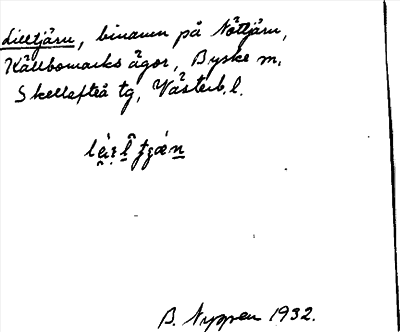 Lilltjärn, binamn på Nöttjärn,
Källbomarks ägor, Byske sn,
Skellefteå tg, Västerb. l.
B. Nyppen 1932.